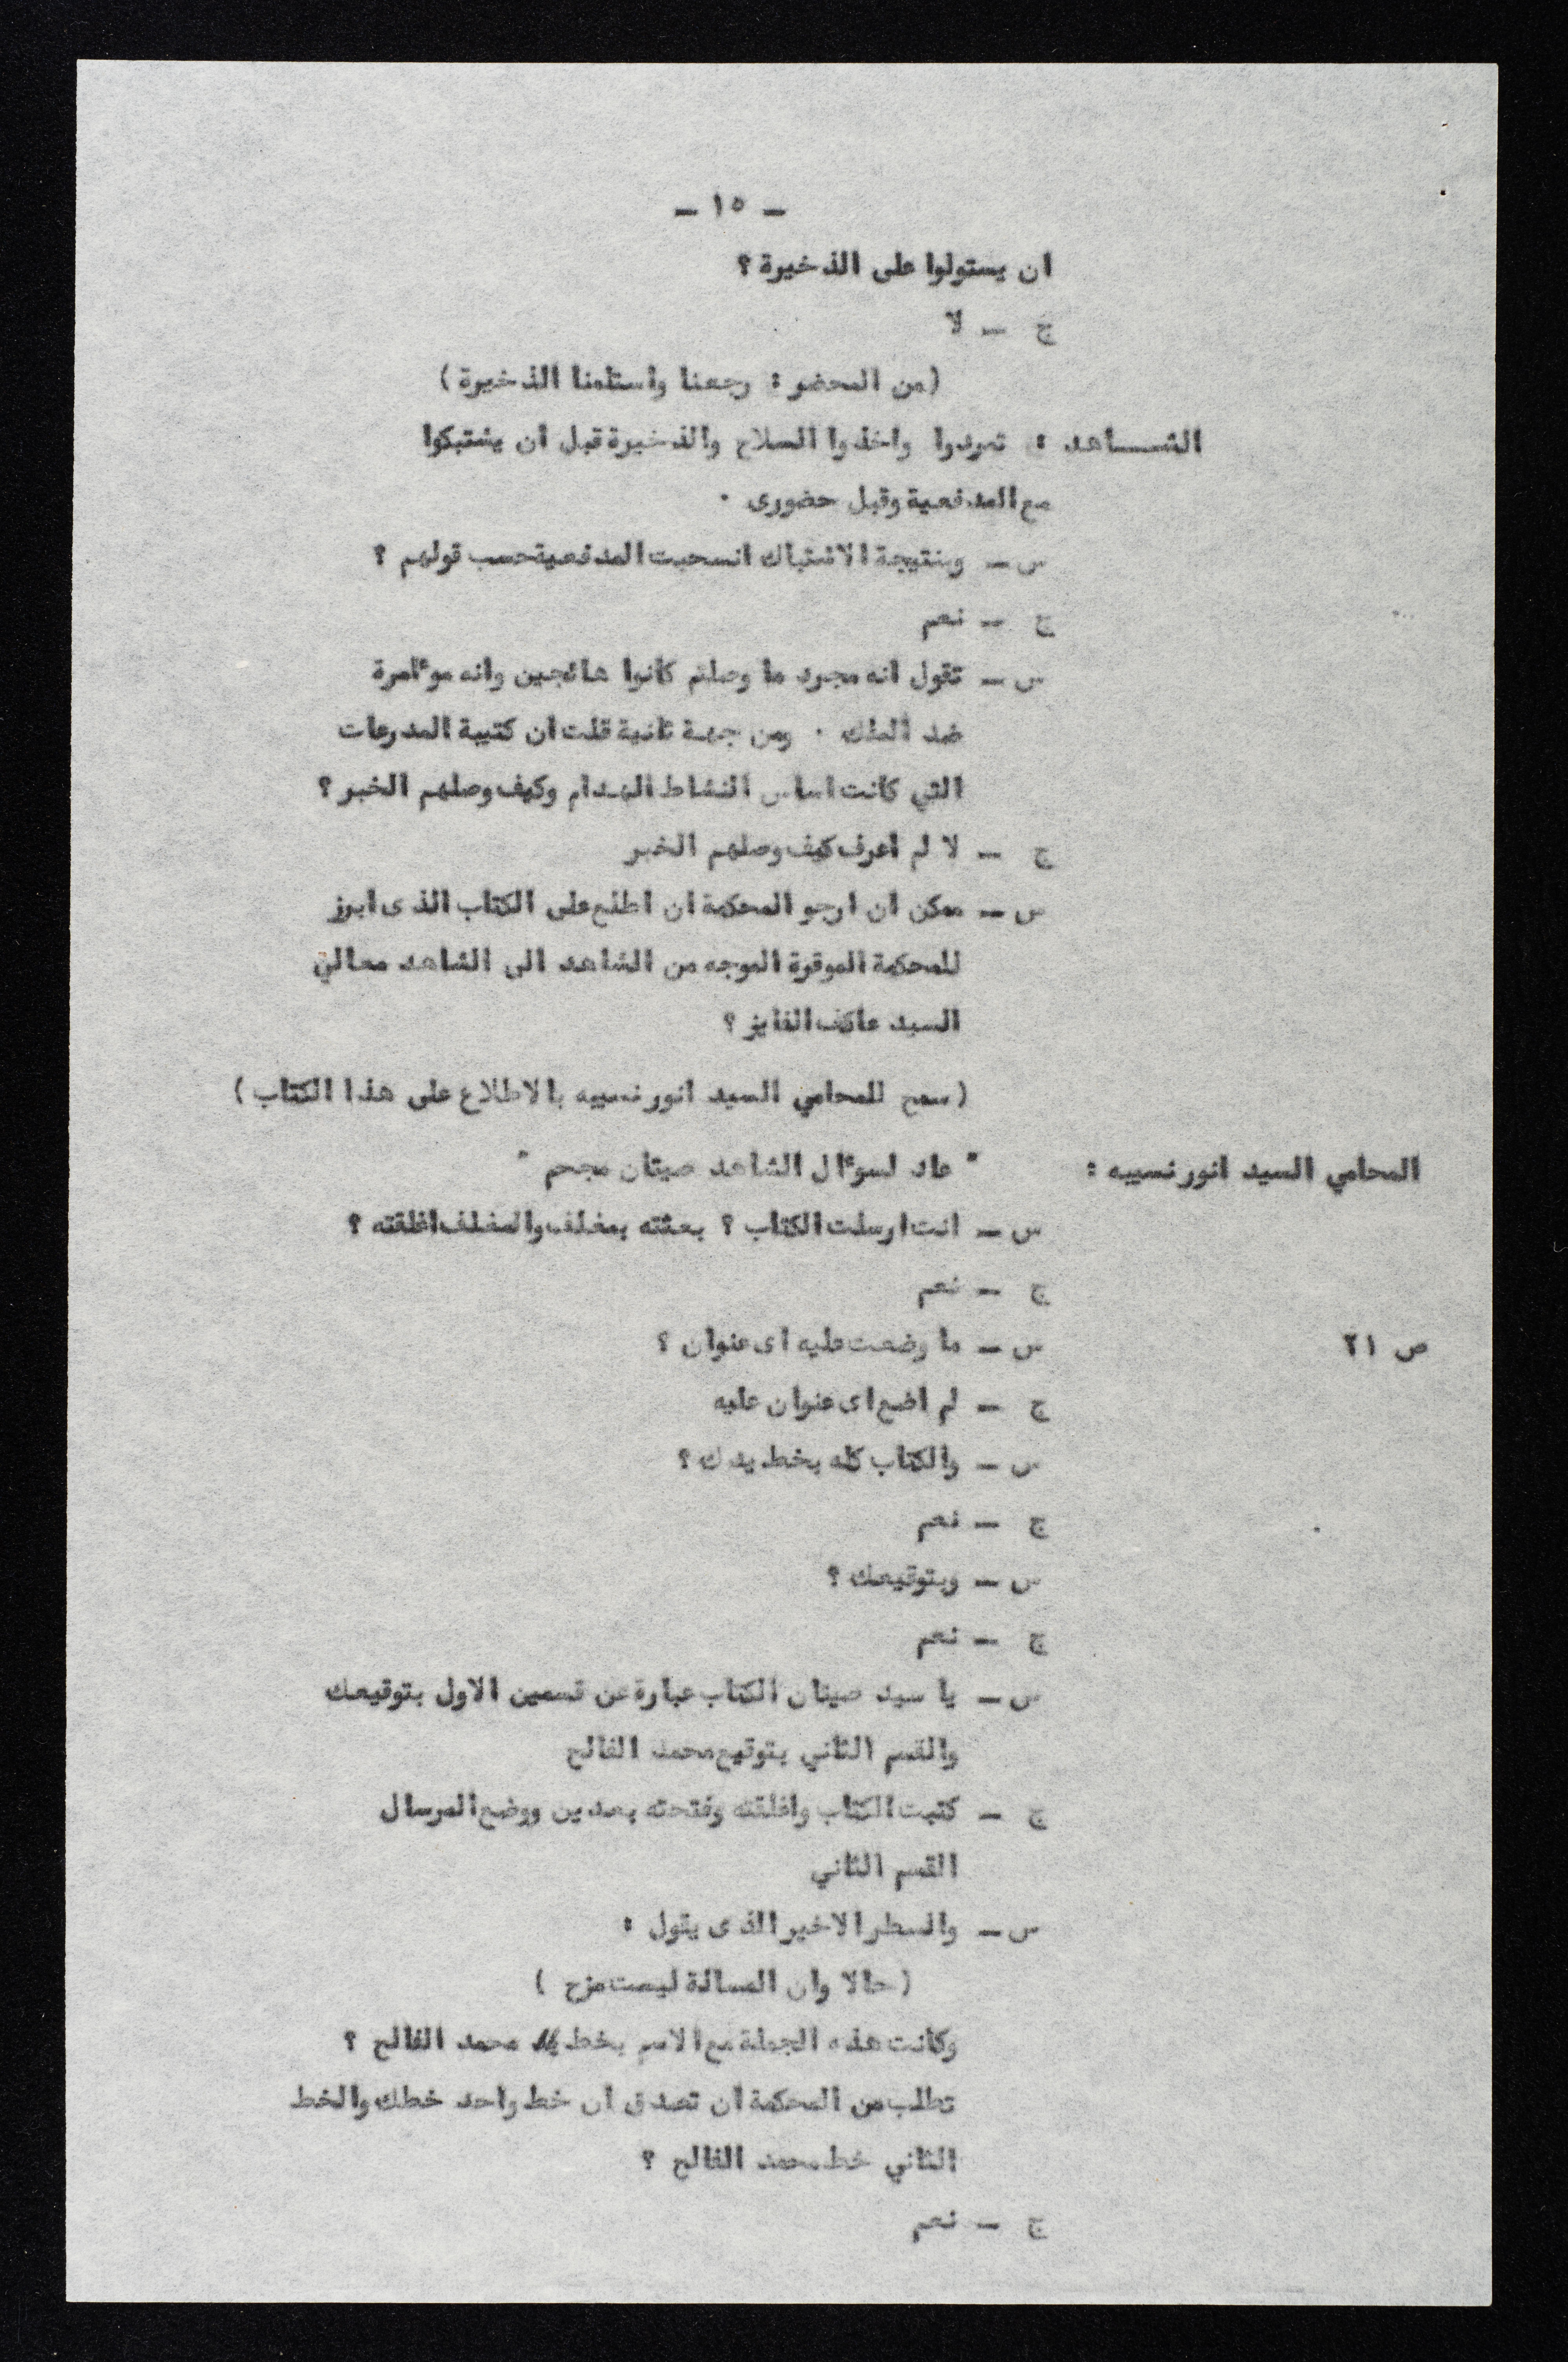 - ١٥ -
ان يستولوا على الذخيرة ؟
ج - لا
(من المحضر : رجعنا واستلمنا الذخيرة)
الشاهد : تمردوا واخذوا السلاح والذخيرة قبل ان يشتبكوا
مع المدفعية وقبل حضورى .
س - وبنتيجة الاشتباك انسحبت المدفعية حسب قولهم ؟
ج - نعم
س - تقول انه مجرد ما وصلتم كانوا هائجين وانه موٴامرة
ضد الملك . ومن جهة ثانية قلت ان كتيبة المدرعات
التي كانت اساس النشاط الهدام وكيف وصلهم الخبر ؟
ج - لا لم اعرف كيف وصلهم الخبر
س - ممكن ان ارجو المحكمة ان اطلع على الكتاب الذى ابرز
للمحكمة الموقرة الموجه من الشاهد الى الشاهد معالي
السيد عاكف الفايز ؟
(سمح للمحامي السيد انور نسيبه بالاطلاع على هذا الكتاب)
المحامي السيد انور نسيبه : " عاد لسوٴال الشاهد صيتان مجحم "
س - انت ارسلت الكتاب ؟ بعثته بمغلف والمغلف اغلقته ؟
ج - نعم
ص ٢١ س - ما وضعت عليه اى عنوان ؟
ج - لم اضع اى عنوان عليه
س - والكتاب كله بخط يدك ؟
ج - نعم
س - وبتوقيعك ؟
ج - نعم
س - يا سيد صيتان الكتاب عبارة عن قسمين الاول بتوقيعك
والقسم الثاني بتوقيع محمد الفالح
ج - كتبت الكتاب واغلقته وفتحته بعدين ووضع المرسال
القسم الثاني
س - والسطر الاخير الذى يقول :
(حالا وان المسالة ليست مزح )
وكانت هذه الجملة مع الاسم بخط محمد الفالح ؟
تطلب من المحكمة ان تصدق ان خط واحد خطك والخط
الثاني خط محمد الفالح ؟
ج - نعم